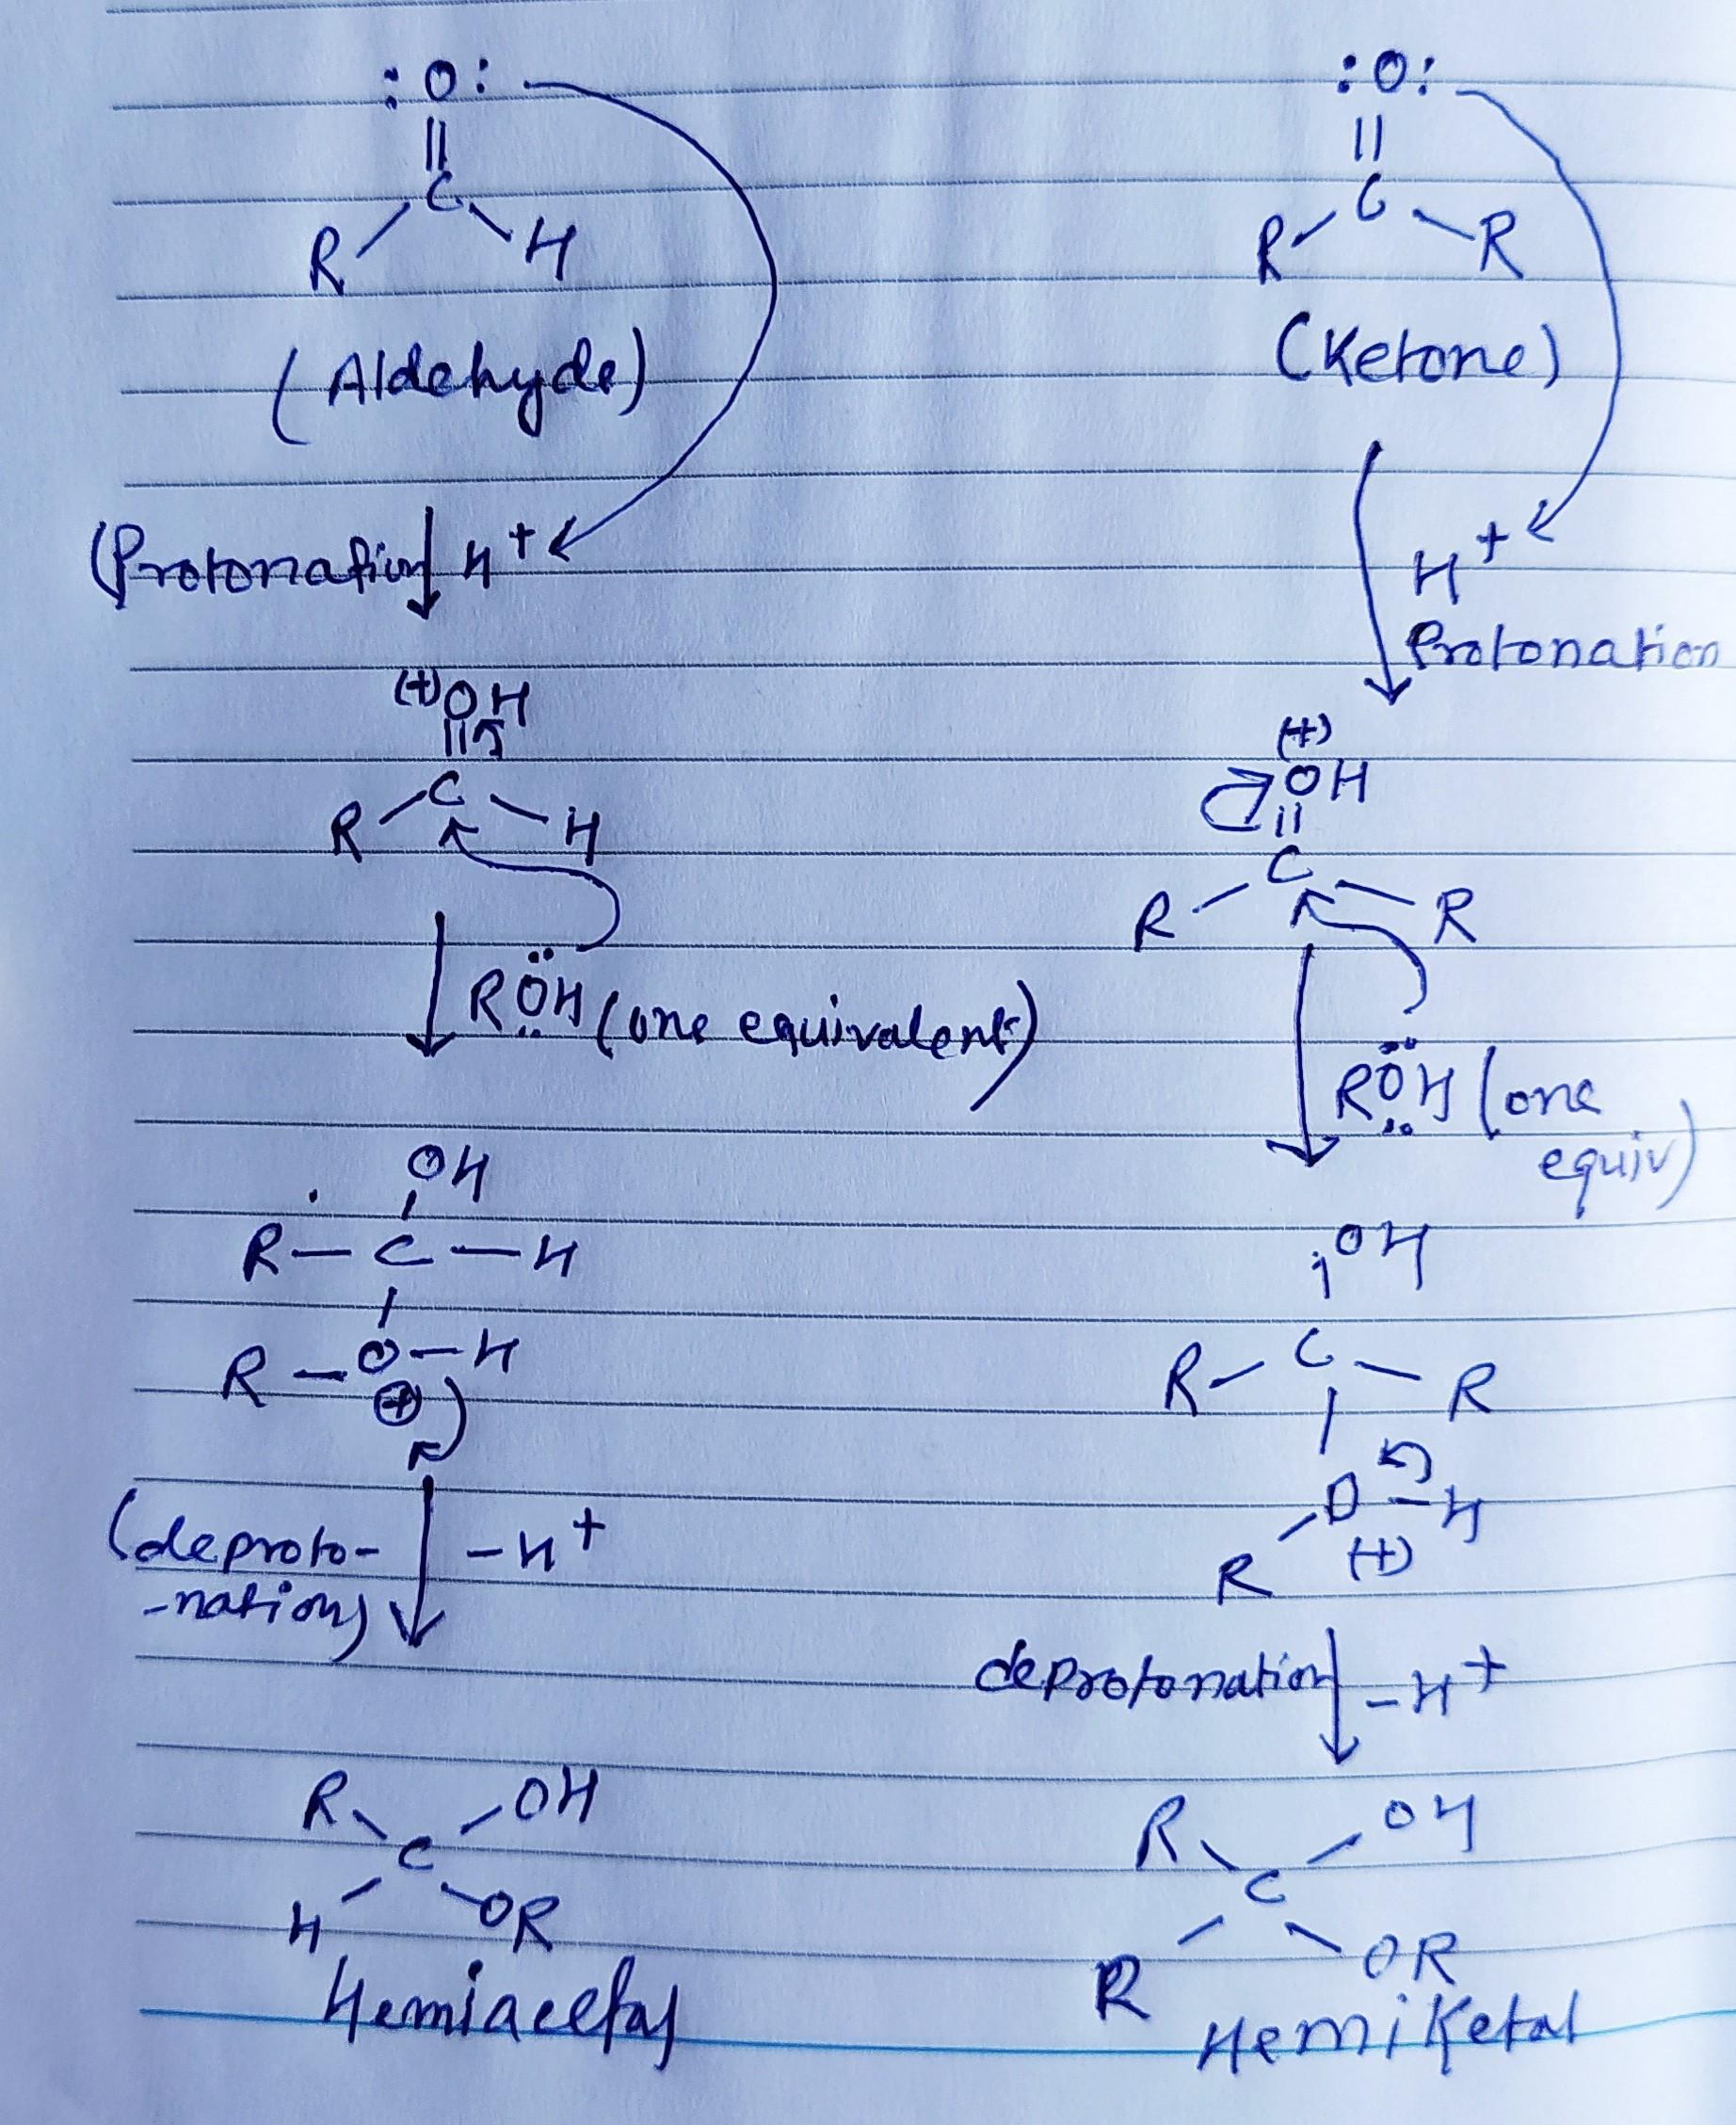 :O:
||
C
R H
(Aldehyde)
(Protonation) H+
(+)OH
||
C
R H
RÖH (one equivalent)
OH
R — C — H
R — O — H
⊕
(deproto-
-nation) - H+
R OH
C
H OR
Hemiacetal
:O:
||
C
R R
(Ketone)
H+
Protonation
(+)
OH
||
C
R R
RÖH (one
equiv)
:OH
C
R R
O — H
R (+)
deprotonation - H+
R OH
C
R OR
HemiKetal